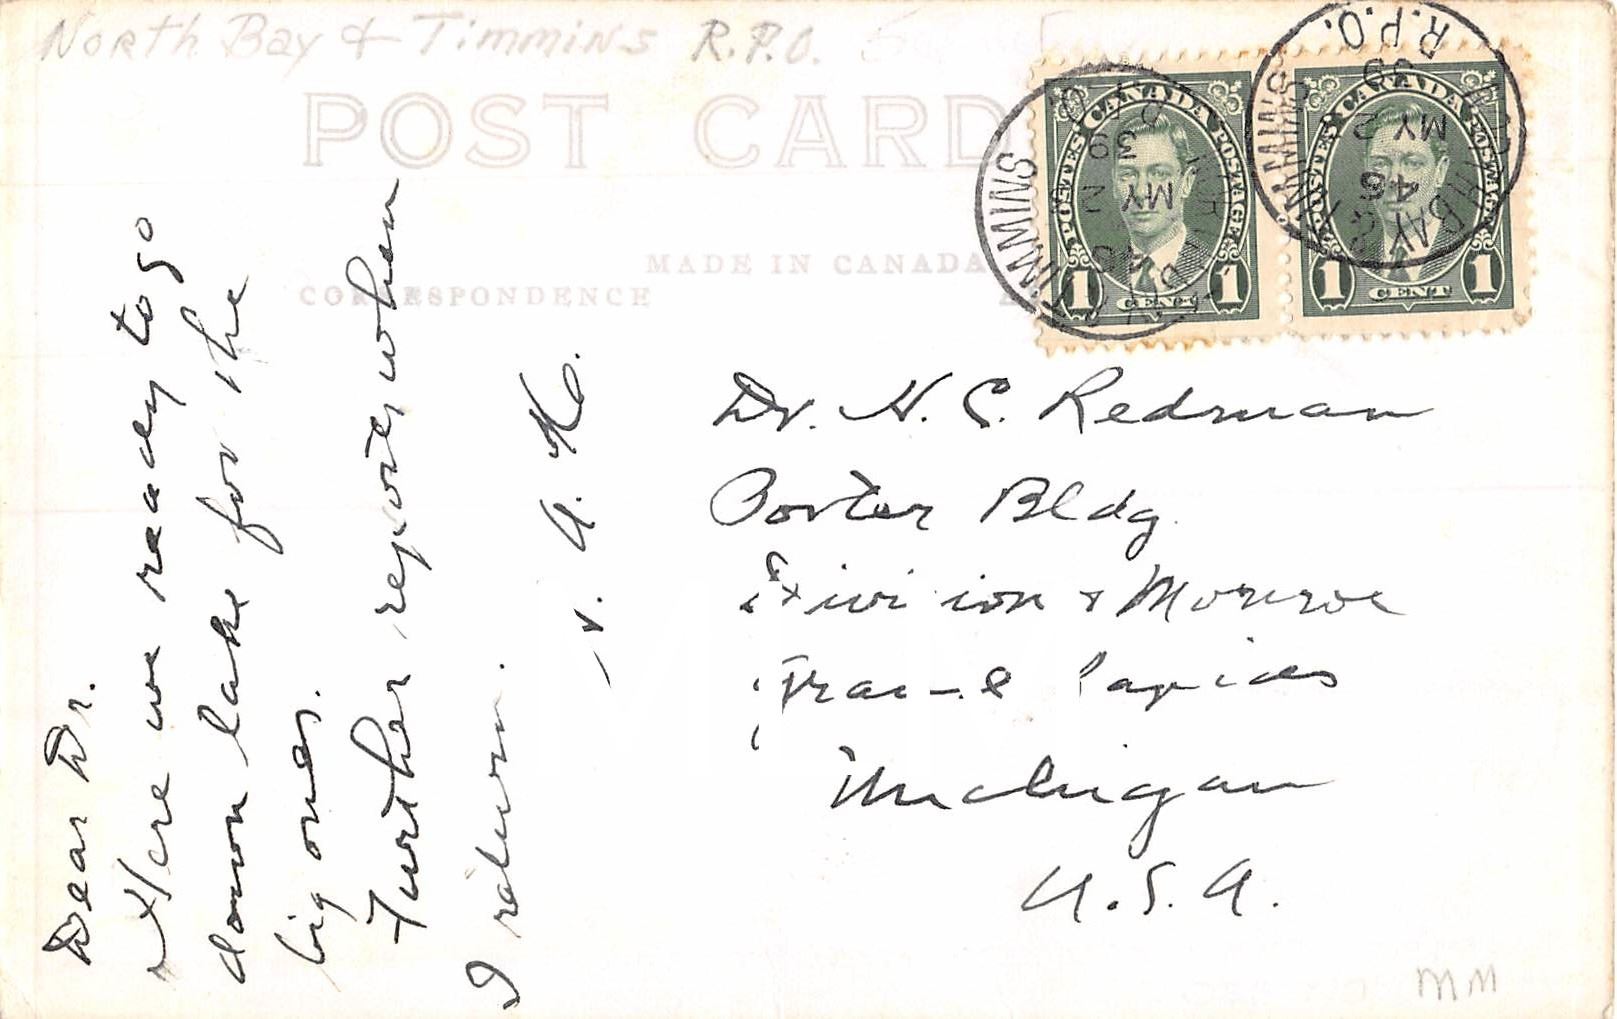 North Bay & Timmins R.P.O.
POST CARD
MADE IN CANADA
CORRESPONDENCE
CANADA
POSTES POSTAGE
1 CENT 1
CANADA
POSTES POSTAGE
1 CENT 1
TIMMINS
MY 2
39
NORTH BAY & TIMMINS
R.P.O.
46
MY 2
39
Dear Dr.
Here we ready to go
down lake for the
big ones.
Further reports when
I return.
V. A. H.
Dr. H. C. Redman
Porter Bldg.
Division & Monroe
Grand Rapids
Michigan
U.S.A.
MM